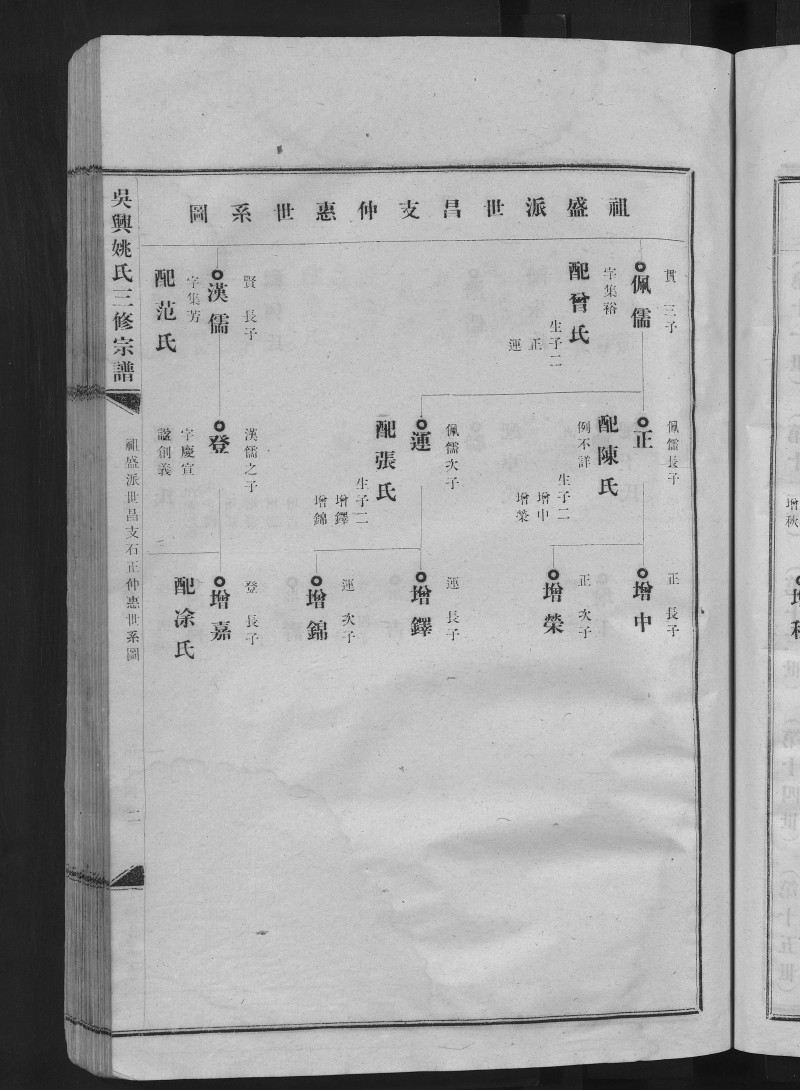 祖盛派世昌支仲惠世系圖
貫 三子
佩儒
字集裕
配曾氏
生子二
正
運
賢 長子
漢儒
字集芳
配范氏
佩儒長子
正
配陳氏
例不詳
生子二
增中
增榮
佩儒次子
運
配張氏
生子二
增鐸
增錦
漢儒之子
登
字慶宣
諡創義
正 長子
增中
正 次子
增榮
運 長子
增鐸
運 次子
增錦
登 長子
增嘉
配凃氏
吳興姚氏三修宗譜
祖盛派世昌支石正仲惠世系圖
二
增秋